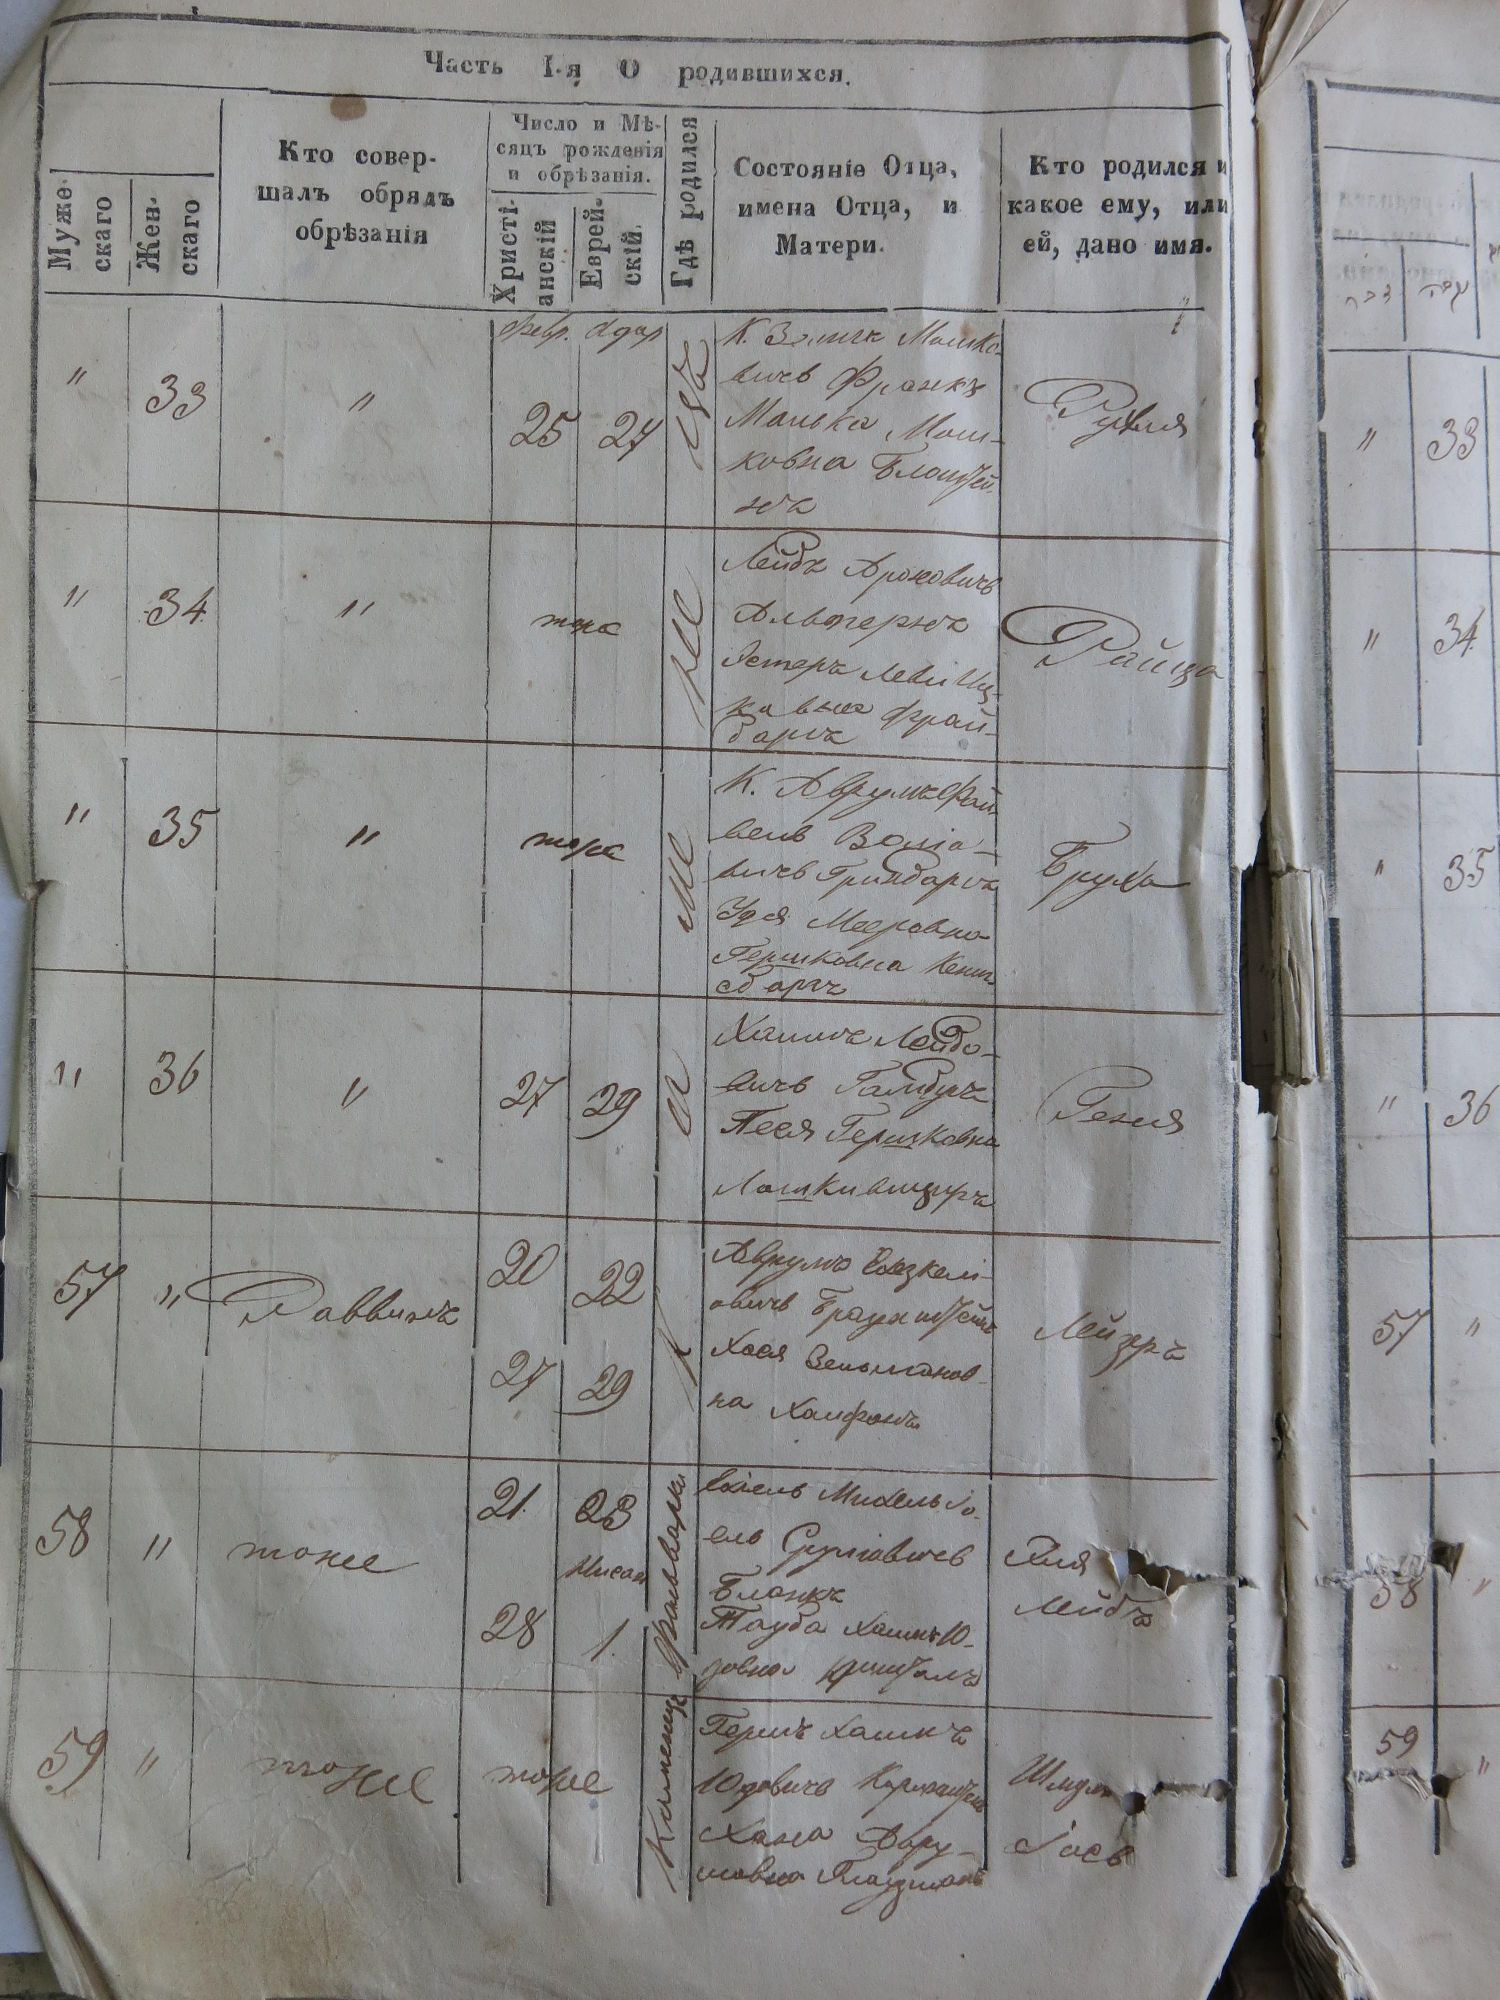 Часть I-я О родившихся.
Муже-
скаго
Жен-
скаго
Кто совер-
шалъ обрядъ
обрѣзанія
Число и Мѣ-
сяцъ рожденія
и обрѣзанія.
Христі-
анскій
Еврей-
скій.
Гдѣ родился
Состояніе Отца,
имена Отца, и
Матери.
Кто родился и
какое ему, или
ей, дано имя.
Февр. Адар
" 33 " 25 27
К. Зелигъ Мошко-
вичъ Франкъ
Манька Мош-
ковна Блоштей-
нъ
Рухля
" 34. " тоже
Лейбъ Ароновичъ
Альтернъ
Эстеръ ЛевиИц-
ковна Фрай-
баргъ
Райца
" 35 " тоже
К. Аврумъ Фай-
вель
вичъ Гринбаргъ
Удя Мееровна
Гершковна Кениг-
сбаргъ
Бруха
" 36 " 27 29
Хаимъ Лейбо-
вичъ Гамбургъ
Песя Гершковна
Геня
57 " Раввинъ 20 22
27 29
Аврумъ Ехезкелі-
овичъ Браунштейнъ
Хася Зельманов-
на
Лейзеръ
58 " тоже 21. 23
Нисан
28 1.
Михель Іо-
ель Сруліовичъ
Бланкъ
Тауба Хаимъ Ю-
зовна Кришталъ
Эля
Лейбъ
Каменец. Фольварки
59 " тоже тоже
Гершъ Хаимъ
Юдовичъ
Хана Авру-
мовна Глузманъ
Шмуль
Іось
" 33
" 34.
" 35
" 36
57 "
58 "
59 "